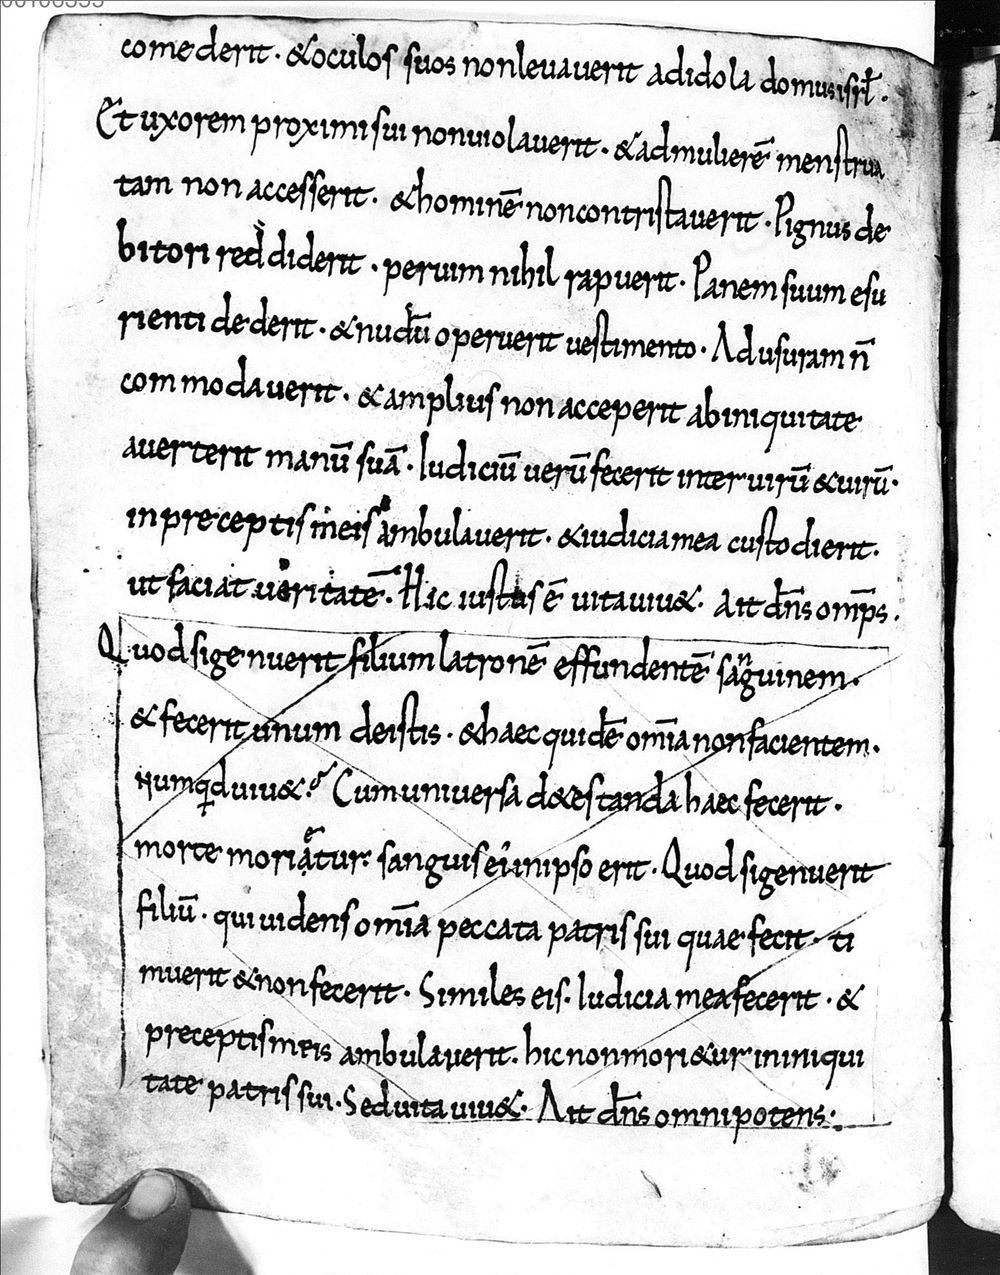 comederit · & oculos suos non leuauerit ad idola domus isrł .
Et uxorem proximi sui non uiolauerit · & ad mulierē menstrua
tam non accesserit · & hominē non contristauerit · Pignus de
bitori reddiderit · per uim nihil rapuerit · Panem suum esu
rienti dederit · & nudū operuerit uestimento · Ad usuram ñ
commodauerit · & amplius non acceperit ab iniquitate
auerterit manū suā · Iudiciū uerū fecerit inter uirū & uirū ·
in preceptis meis ambulauerit · & iudicia mea custodierit ·
ut faciat ueritatē · Hic iustus ē uita uiu& · Ait dñs omp̄s .
Quod si genuerit filium latronē effundentē sanguinem ·
& fecerit unum de istis · & haec quidē om̄ia non facientem ·
numq̄d uiu& ? Cum uniuersa d&estanda haec fecerit ·
morte morietur · sanguis ei in ipso erit · Quod si genuerit
filiū · qui uidens om̄ia peccata patris sui quae fecit · ti
muerit & non fecerit · Similes eis · Iudicia mea fecerit · &
preceptis meis ambulauerit · hic non mori&ur in iniqui
tate patris sui · Sed uita uiu& · Ait dñs omnipotens ·